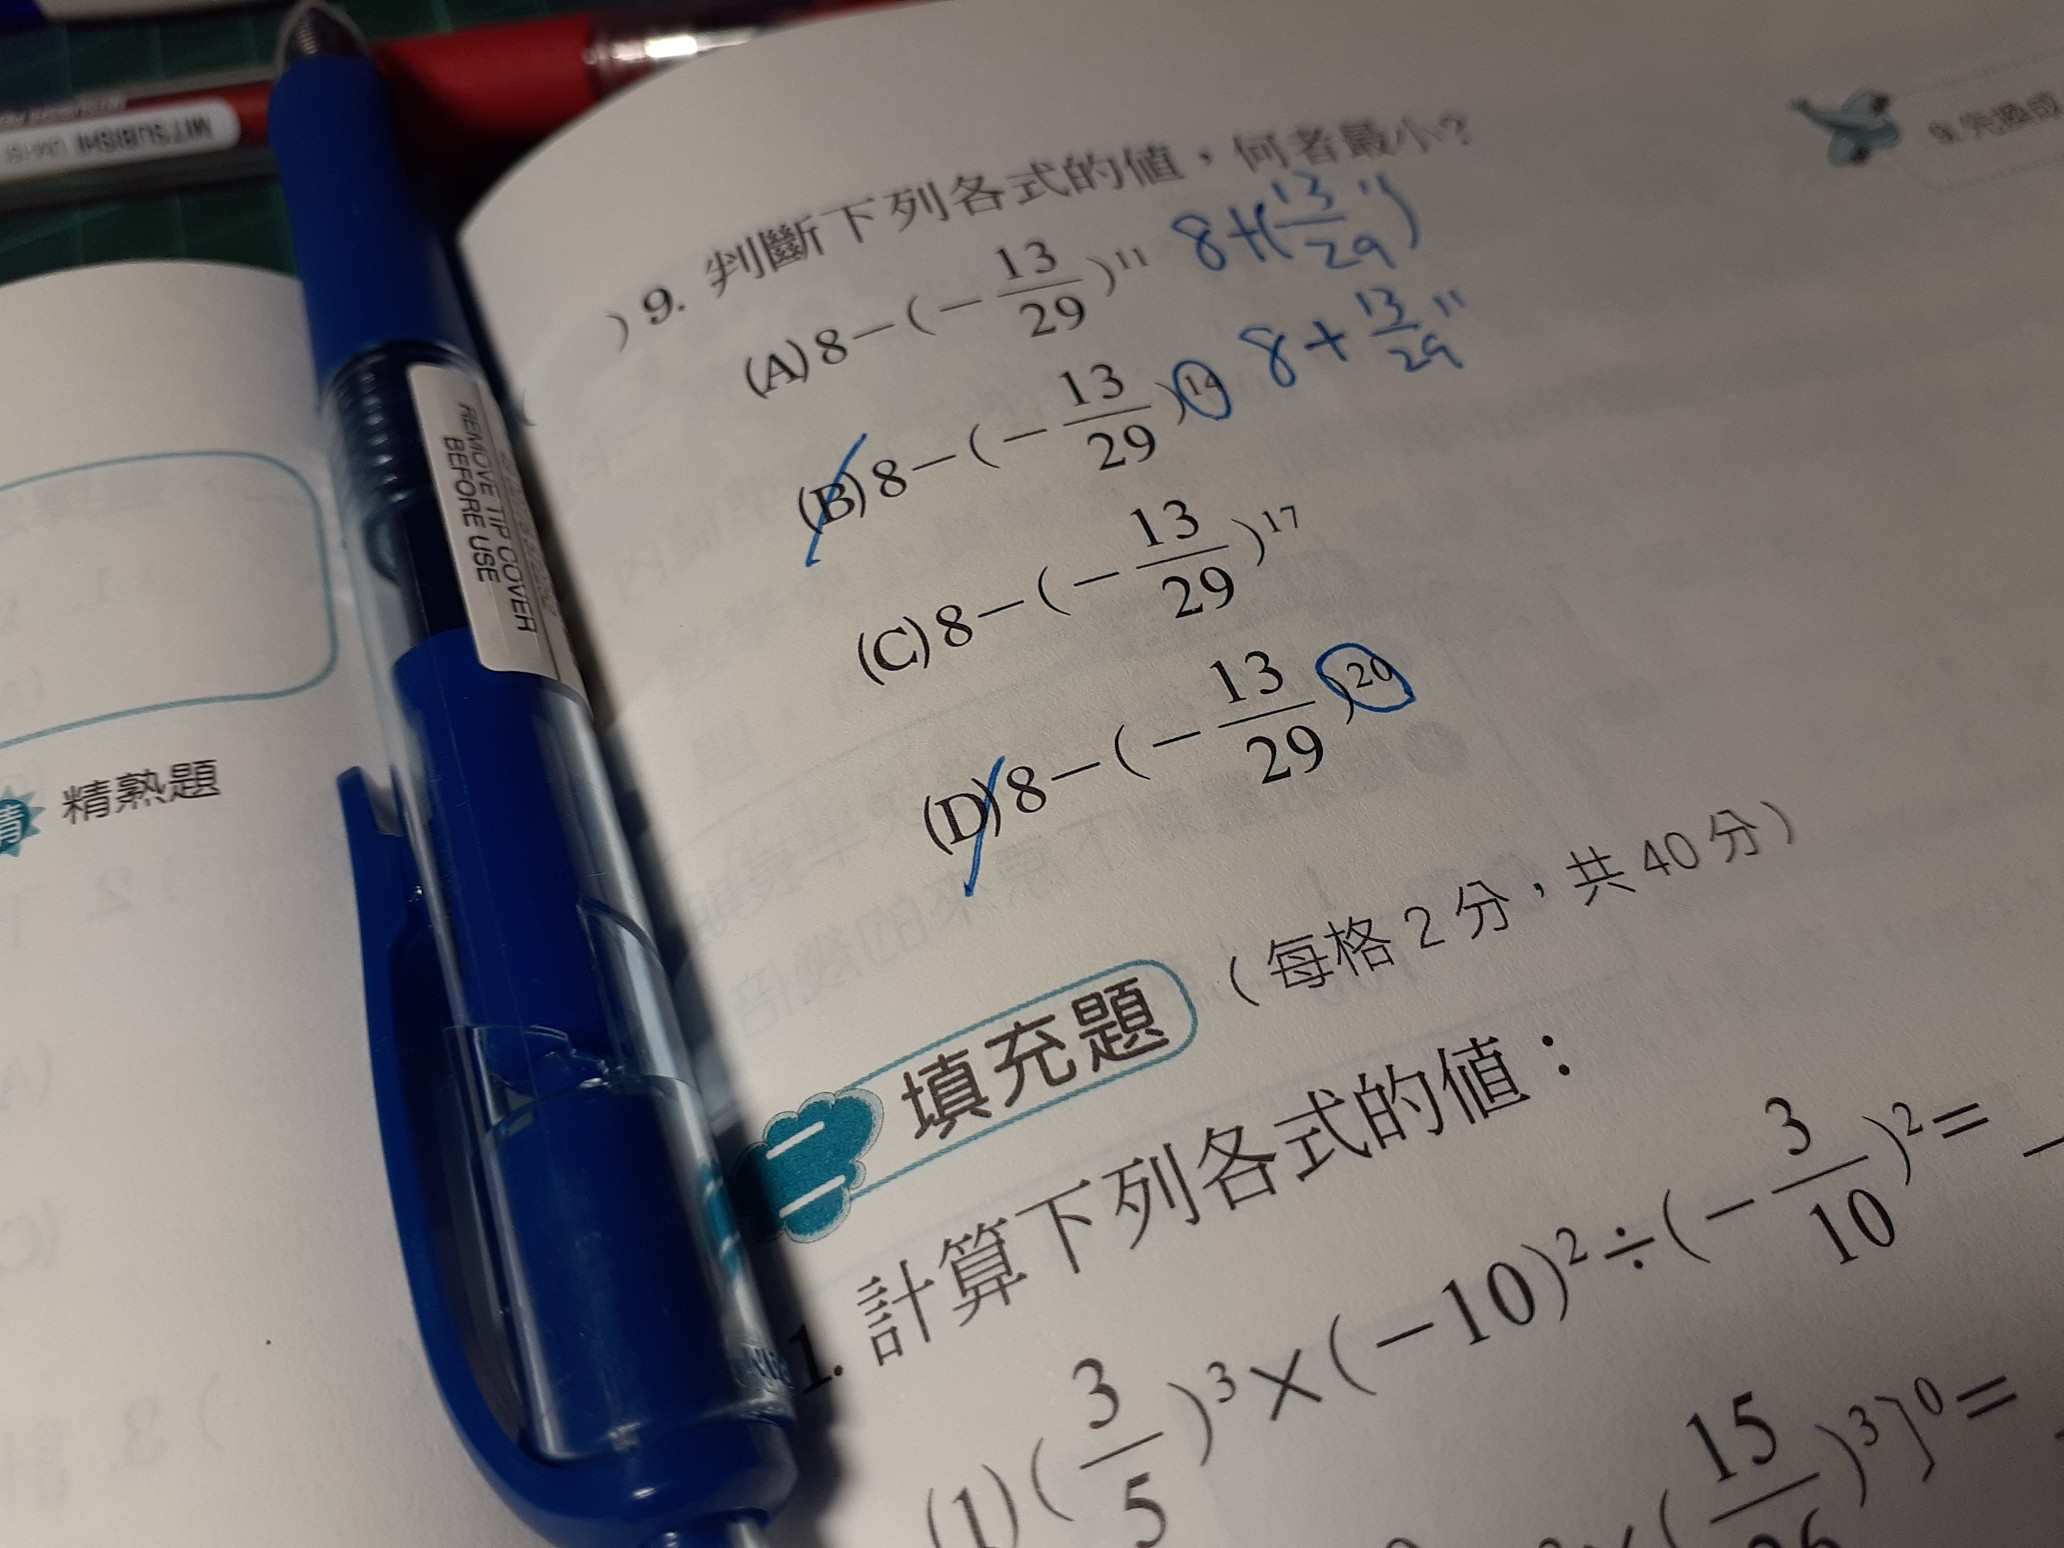 MITSUBISHI
REMOVE TIP COVER
BEFORE USE
精熟題
) 9. 判斷下列各式的值，何者最小?
(A) 8－(－13/29)¹¹ 8+(13/29¹¹)
(B) 8－(－13/29)¹⁴ 8+13/29¹¹
(C) 8－(－13/29)¹⁷
(D) 8－(－13/29)²⁰
二 填充題 (每格2分，共40分)
1. 計算下列各式的值：
(1) (3/5)³×(－10)²÷(－3/10)²=